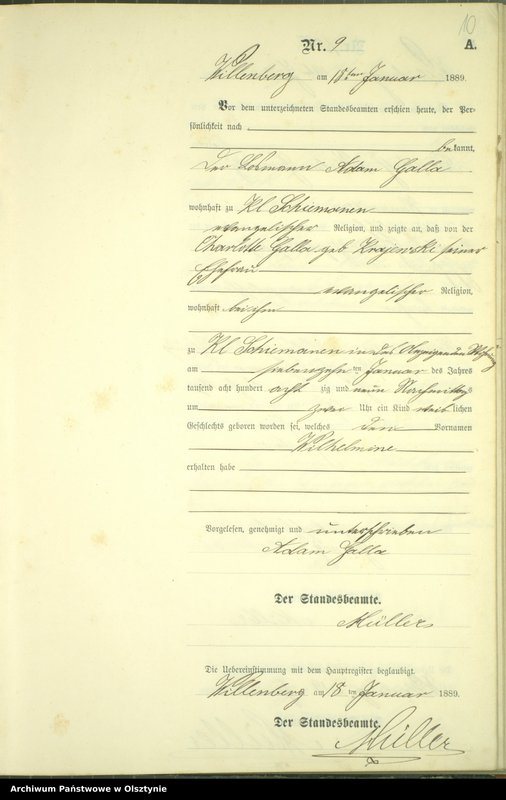 10
Nr. 9
A.
Willenberg am 18ten Januar 1889.
Vor dem unterzeichneten Standesbeamten erschien heute, der Per-
sönlichkeit nach
bekannt,
Der Losmann Adam Galla
wohnhaft zu Kl Schiemanen
evangelischer Religion, und zeigte an, daß von der
Charlotte Galla geb Krajewski seiner
Ehefrau
evangelischer Religion,
wohnhaft bei ihm
zu Kl Schiemanen in des Anzeigenden Wohnung
am siebenzehn ten Januar des Jahres
tausend acht hundert acht zig und neun Nachmittags
um zwei Uhr ein Kind weiblichen
Geschlechts geboren worden sei, welches den Vornamen
Wilhelmine
erhalten habe
Vorgelesen, genehmigt und unterschrieben
Adam Galla
Der Standesbeamte.
Müller
Die Uebereinstimmung mit dem Hauptregister beglaubigt.
Willenberg am 18 ten Januar 1889.
Der Standesbeamte.
Müller
Archiwum Państwowe w Olsztynie